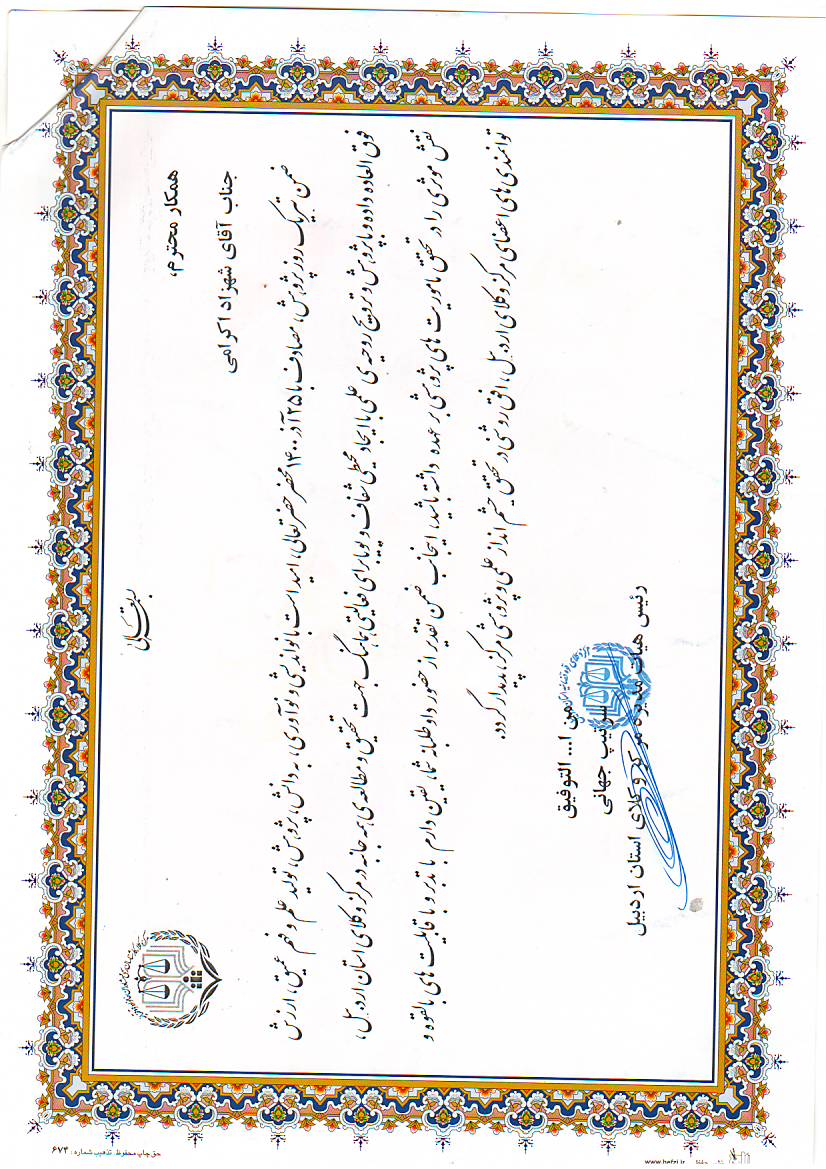 بسمه تعالی
همکار محترم،
جناب آقای شهرزاد اکرامی
ضمن تبریک روز پژوهش، مصادف با ۲۵ آذر ۱۴۰۰ محضر حضرتعالی، امید است با نواندیشی و نوآوری، به دانش، پژوهش، تولید علم و فهم عمیق، ارزش
فوق العاده داده و با پژوهش و ترویج روحیه ی علمی با ایجاد محیطی شفاف و پویا برای فعالیتی هماهنگ جهت تحقیق و مطالعه ی همه جانبه در مرکز وکلای استان اردبیل،
نقش موثری را در تحقق ماموریت های پژوهشی بر عهده داشته باشید، اینجانب ضمن تقدیر از حضور داوطلبانه شما، یقین دارم با تدبر و با قابلیت های بالقوه و
توانمندی های اعضای مرکز وکلای اردبیل، افق روشنی در تحقق چشم انداز علمی و پژوهشی مرکز پدیدار گردد.
ومن ا... التوفیق
سوتیپ جهانی
رئیس هیات مدیره مرکز وکلای استان اردبیل
حق چاپ محفوظ. تذهیب شماره: ۶۷۴
www.hafzi.ir